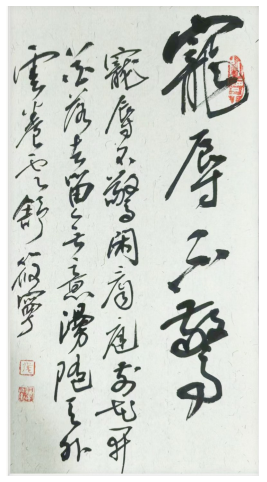 寵辱不驚
寵辱不驚閑看庭前花开
花落去留无意漫随天外
雲卷云舒 筱寧